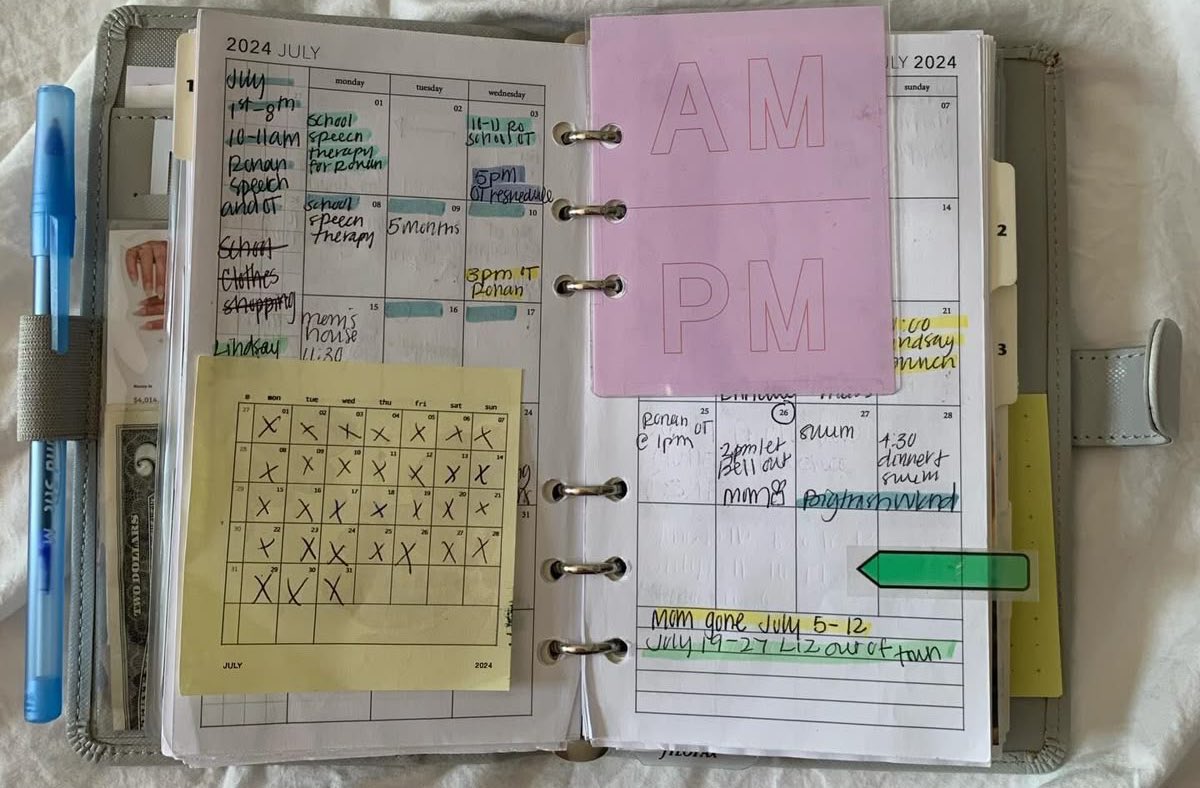 2024 JULY
July
1st-8th
10-11am
Ronan
speech
and OT
School
Clothes
shopping
Lindsay
monday
tuesday
wednesday
01
school
speech
therapy
for Ronan
02
03
school OT
5pm
08
school
speech
therapy
09
5 months
10
3pm OT
Ronan
15
mom's
house
11:30
16
17
24
31
mon tue wed thu fri sat sun
27 01 02 03 04 05 06 07
28 08 09 10 11 12 13 14
29 15 16 17 18 19 20 21
30 22 23 24 25 26 27 28
31 29 30 31
JULY 2024
AM
PM
LY 2024
sunday
07
14
21
:00
ndsay
25
Ronan OT
@ 1pm
26
2pm let
Bell out
mom
27
swim
28
4:30
dinner+
swim
Big trash wknd
Mom gone July 5-12
July 19-27 Liz out of town
1
2
3
TWO DOLLARS
$4,014